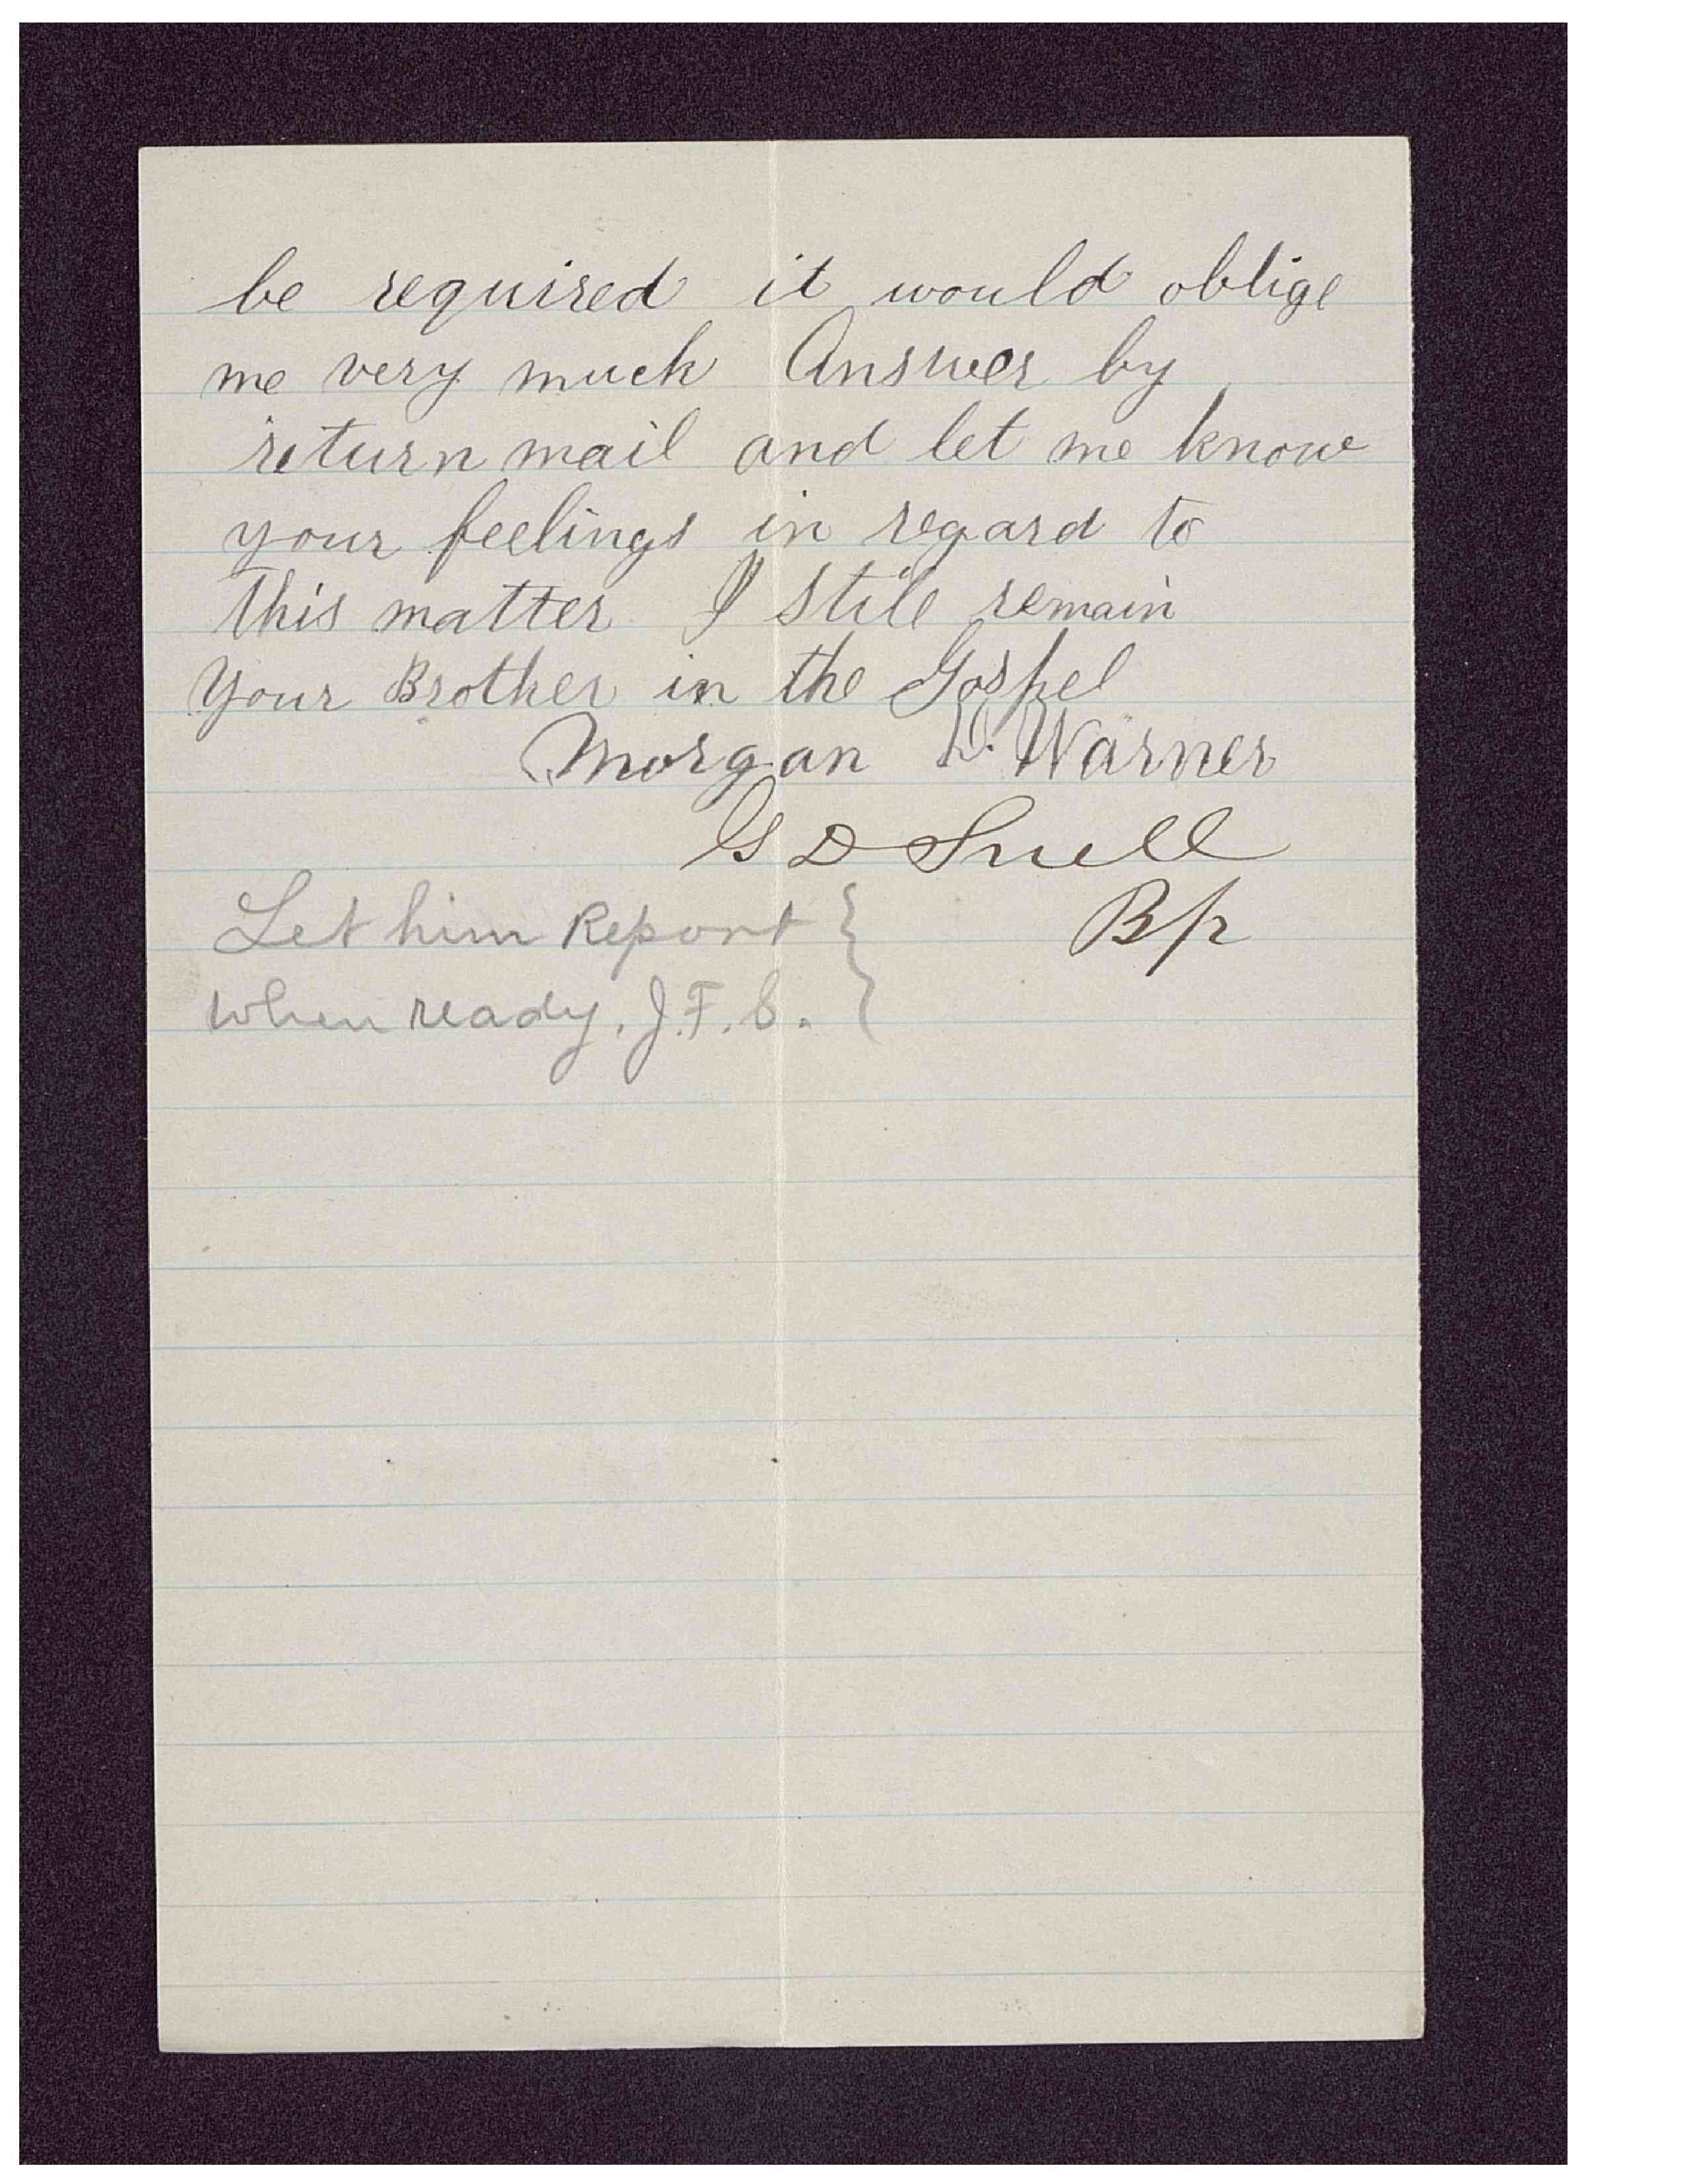 be required it would oblige
me very much Answer by
return mail and let me know
your feelings in regard to
this matter I still remain
Your Brother in the Gospel
Morgan D. Warner
G D Snell
Bp
Let him Report
when ready. J.F.S.